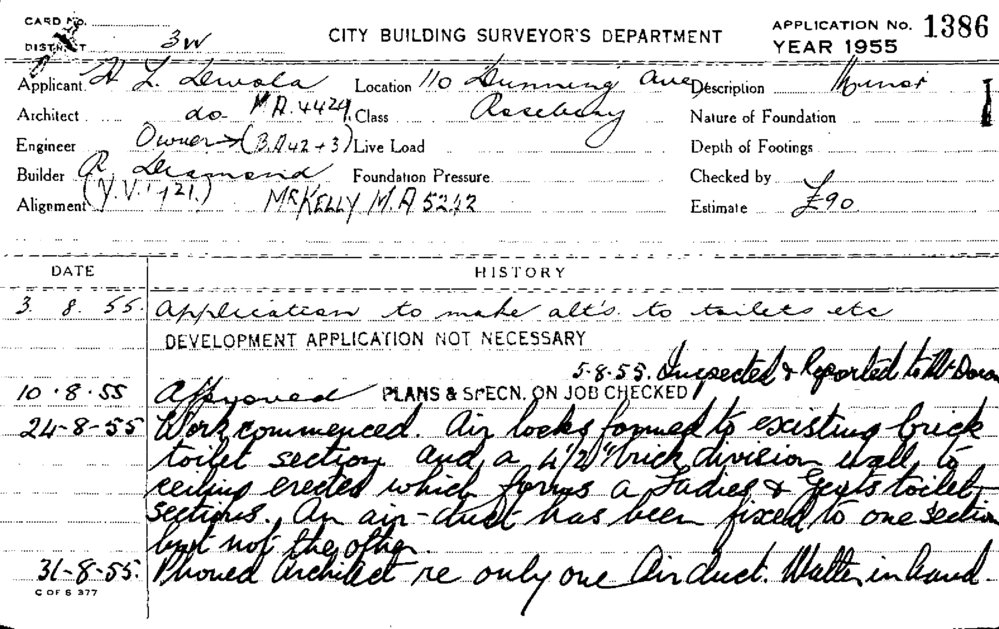 CARD No.
DISTRICT 3W
CITY BUILDING SURVEYOR'S DEPARTMENT
APPLICATION No. 1386
YEAR 1955
Applicant H L Location 110 Dunning Ave, Description Minor
Architect do. MA.4429. Class Rosebery Nature of Foundation
Engineer Owner → (B.A42+3) Live Load Depth of Footings
Builder R. Desmond Foundation Pressure Checked by
Alignment MR KELLY M.A 5242 Estimate £90
DATE HISTORY
3. 8. 55. Application to make alt's. to toilets etc
DEVELOPMENT APPLICATION NOT NECESSARY
5-8-55. Inspected & Reported to Mr Doran
10.8.55 Approved PLANS & SPECN. ON JOB CHECKED
24-8-55 Work commenced. Air locks formed to existing brick
toilet section and a 4½" brick division wall to
ceiling erected which forms a Ladies & Gents toilet
sections. An air-duct has been fixed to one section
but not the other.
31-8-55. Phoned Architect re only one Air duct. Matter in hand.
C OF S 377